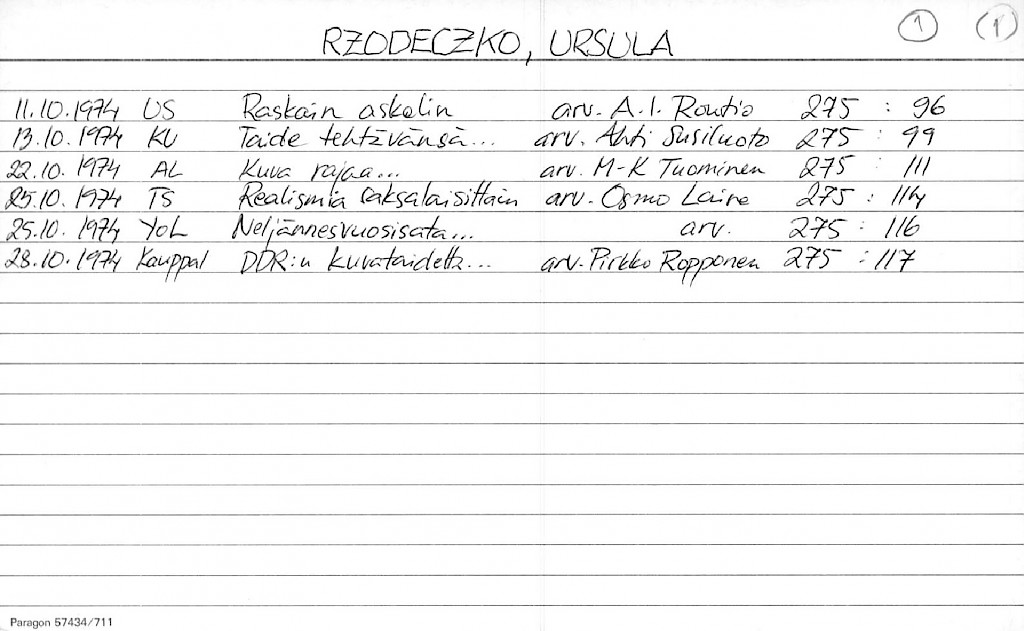 RZODECZKO, URSULA 1 1
11.10.1974 US Raskain askelin arv. A.I. Routio 275 : 96
13.10.1974 KU Taide tehtävänsä... arv. Ahti Susiluoto 275 : 99
22.10.1974 AL Kuva rajaa... arv. M-K Tuominen 275 : 111
25.10.1974 TS Realismia saksalaisittain arv. Osmo Laine 275 : 114
25.10.1974 YOL Neljännesvuosisata... arv. 275 : 116
28.10.1974 Kauppal DDR:n kuvataidetta... arv. Pirkko Ropponen 275 : 117
Paragon 57434/711